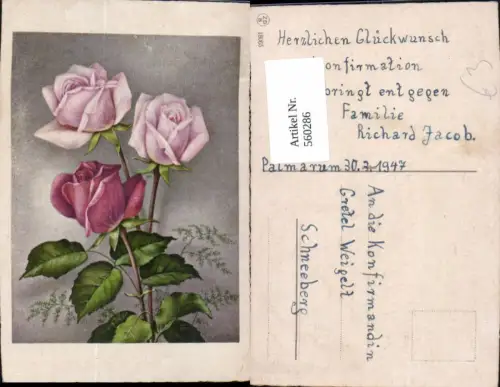 Herzlichen Glückwunsch
Konfirmation
bringt entgegen
Familie
Richard Jacob.
Palmarum 30.3.1947
An die Konfirmandin
Gretel Weigelt
Schneeberg
Artikel Nr.
560286